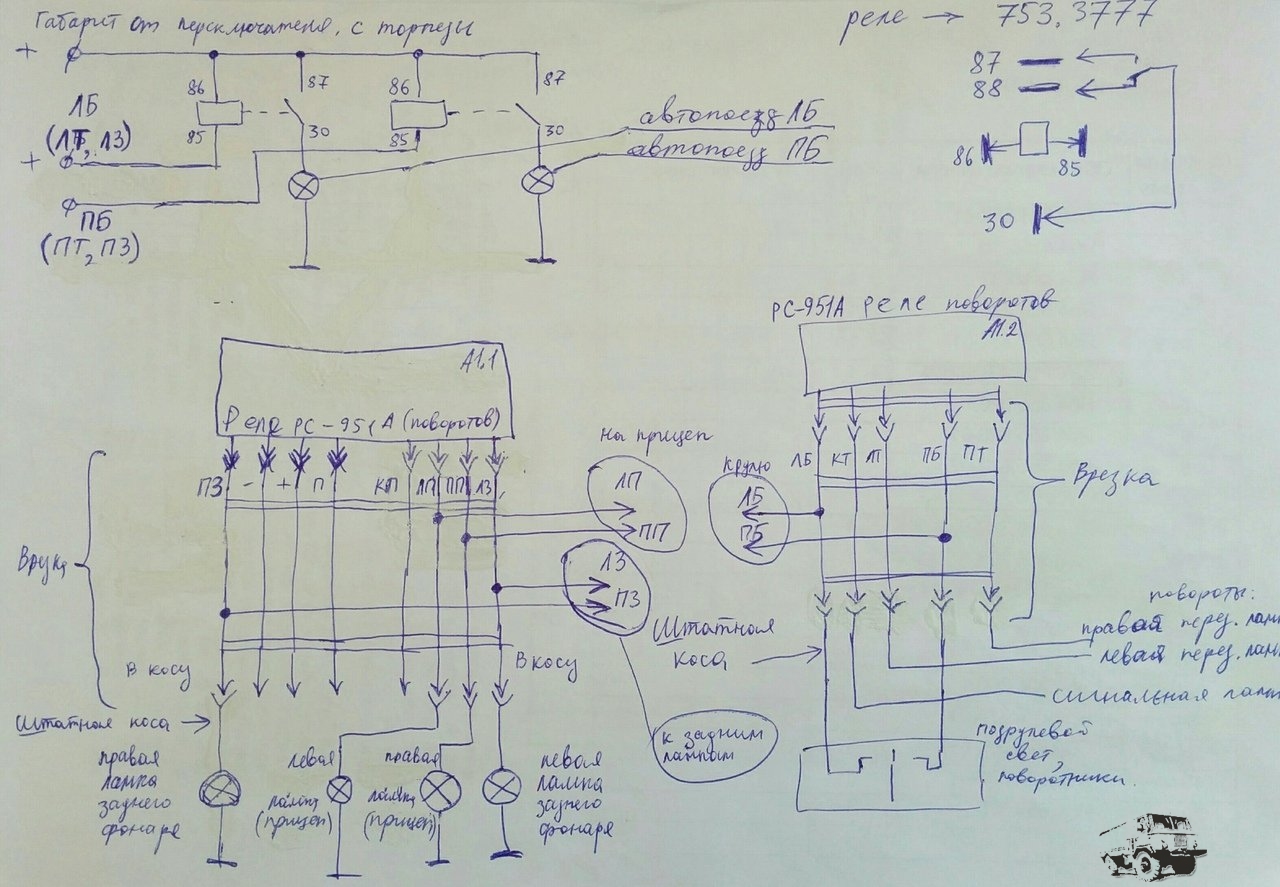 Габарит от переключателя, с торпеды
реле → 753.3777
+
86
87
86
87
ЛБ
(ЛТ, ЛЗ)
+
85
30
85
30
автопоезд ЛБ
автопоезд ПБ
ПБ
(ПТ, ПЗ)
87
88
86
85
30
РС-951А реле поворотов
А1.2
А1.1
Реле РС-951А (поворотов)
ПЗ
-
+
П
КП
ЛП
ПП
ЛЗ
на прицеп
ЛП
ПП
ЛЗ
ПЗ
к рулю
ЛБ
ПБ
ЛБ
КТ
ПБ
ПТ
Врезка
Врезка
В косу
В косу
Штатная коса →
Штатная
коса →
повороты:
правой перед. лам
левой перед. лам
сигнальная ламп
к задним
лампам
подрулевой
свет,
поворотники.
правая
лампа
заднего
фонаря
левая
лампа
(прицеп)
правая
лампа
(прицеп)
левая
лампа
заднего
фонаря